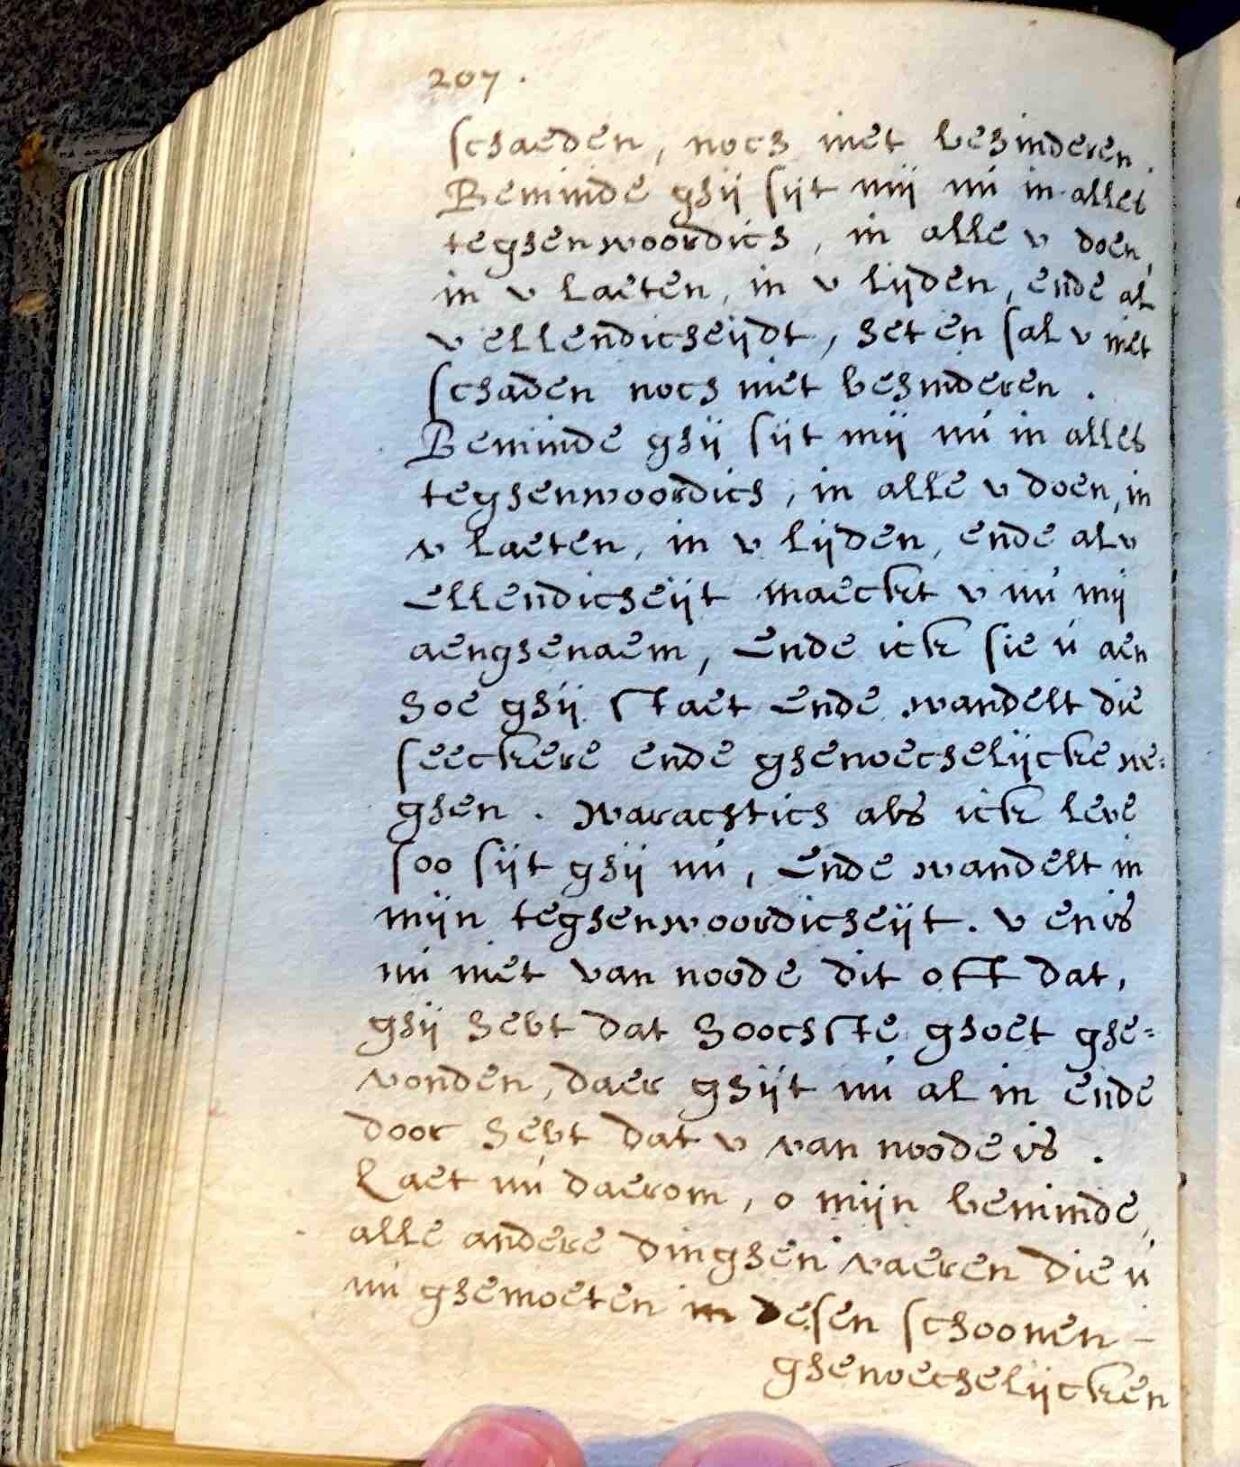 207.
schaeden, noch niet behinderen.
Beminde ghij sijt mij nú in alles
teghenwoordich, in alle v doen,
in v laeten, in v lijden, ende al
v ellendicheijdt, het en sal v niet
schaden noch niet behinderen.
Beminde ghij sijt mij nú in alles
teghenwoordich, in alle v doen, in
v laeten, in v lijden, ende al v
ellendicheijt maeckt v nú mij
aenghenaem, ende ick sie ú aen
hoe ghij staet ende wandelt die
seeckere ende ghenoechelijcke we:
ghen. Warachtich als ick leve
soo sijt ghij nú, ende wandelt in
mijn teghenwoordicheijt. v en is
nú niet van noode dit oft dat,
ghij hebt dat hoochste ghoet ghe-
vonden, daer ghijt nú al in ende
door hebt dat v van noode is.
Laet nú daerom, o mijn beminde,
alle andere dinghen vaeren die ú
nú ghemoeten in desen schoonen -
ghenoechelijcken